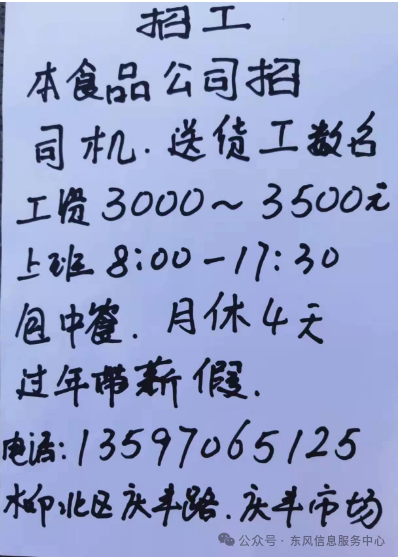 招工
本食品公司招
司机.送货工数名
工资3000~3500元
上班8:00-17:30
包中餐.月休4天
过年带薪假.
电话:13597065125
柳北区庆丰路.庆丰市场
公众号·东风信息服务中心